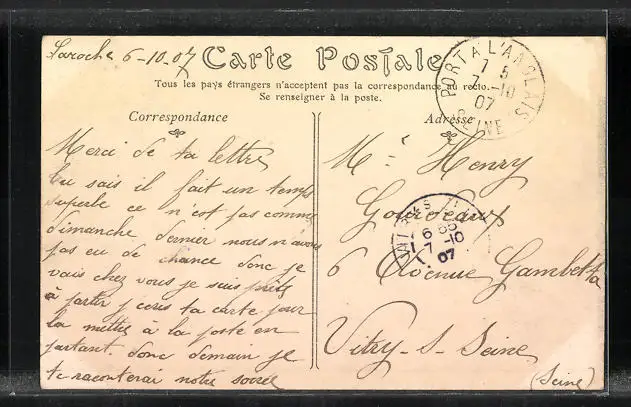 Laroche 6-10.07
Carte Postale
Tous les pays étrangers n'acceptent pas la correspondance au recto.
Se renseigner à la poste.
Correspondance
Merci de ta lettre
Tu sais il fait un temps
superbe ce n'est pas comme
dimanche dernier nous n'avons
pas eu de chance donc je
vais chez vous je suis prête
à partir j'ecris ta carte pour
la mettre à la poste en
partant. donc demain je
te raconterai notre soirée
Adresse
Mr Henry
Gourdeaux
6 Avenue Gambetta
Vitry-S-Seine
(Seine)
PORT A L'ANGLAIS
1 5
7-10
07
SEINE
7-10
07